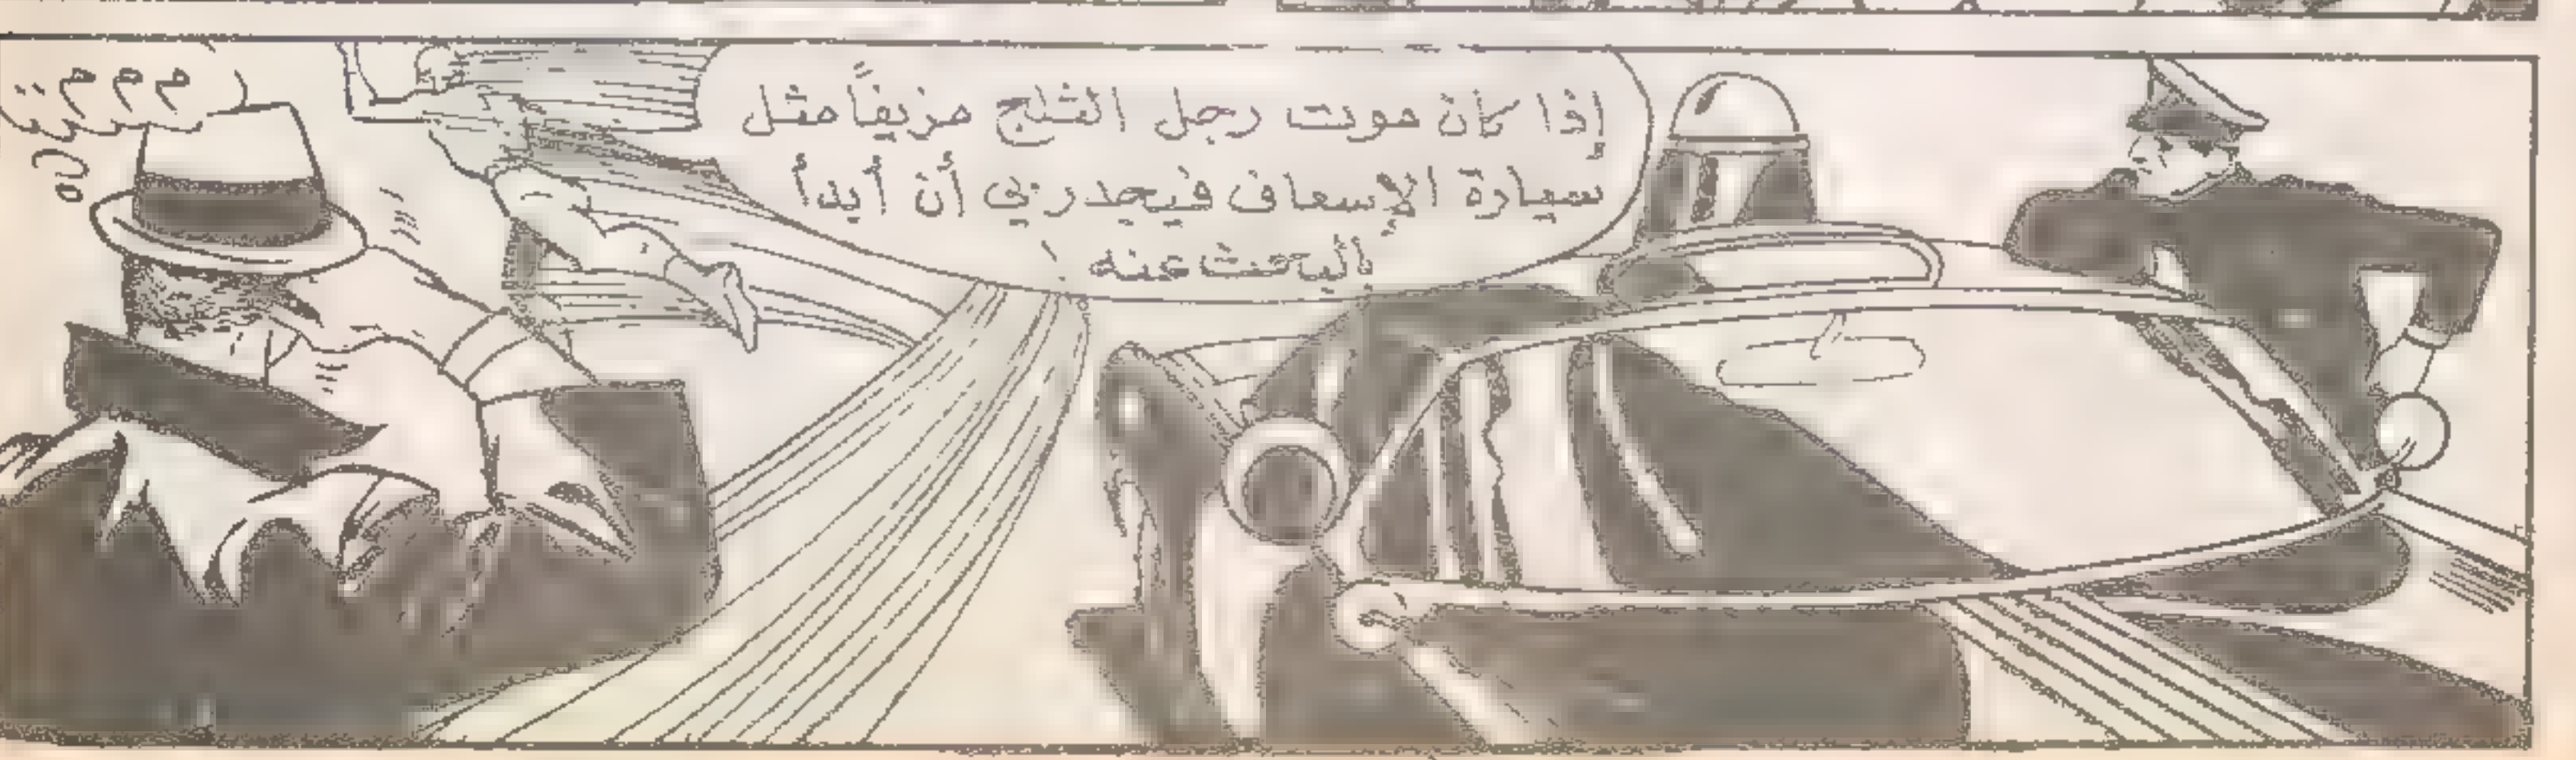 إذا كان موت رجل الثلج مزيفاً مثل
سيارة الإسعاف فيجدر بي أن أبدأ
بالبحث عنه !
م م م ..